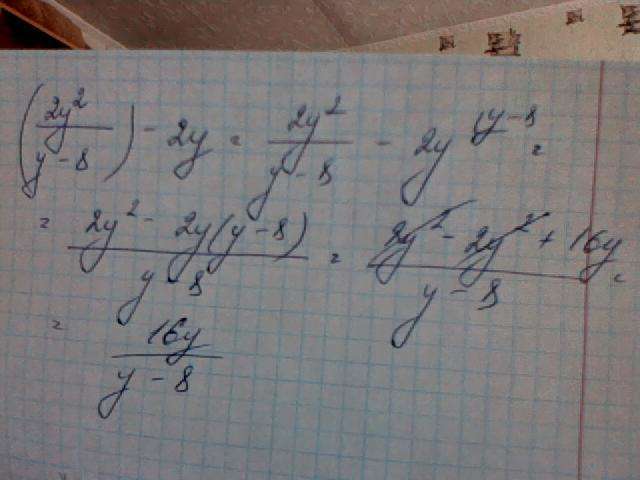 (2y²/(y-8)) - 2y = 2y²/(y-8) - 2y (y-8 =
= (2y² - 2y(y-8))/(y-8) = (2y² - 2y² + 16y)/(y-8) =
= 16y/(y-8)